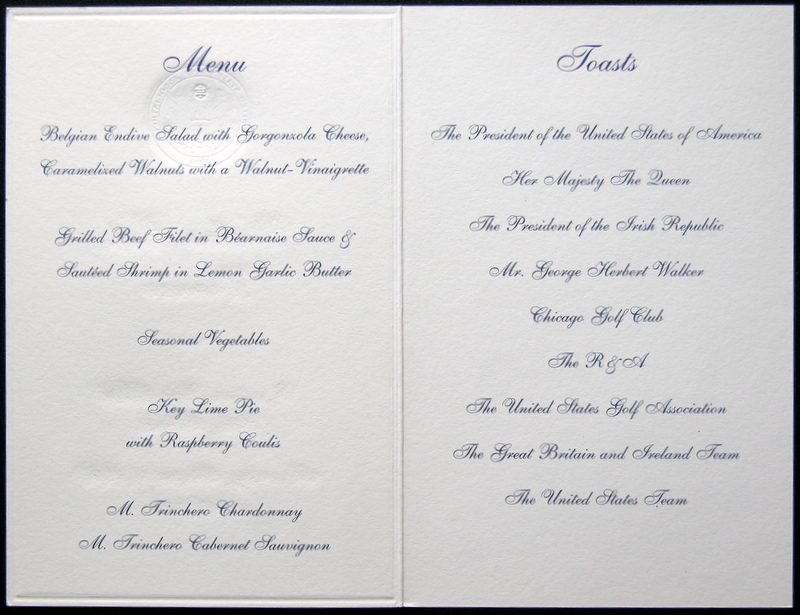 Menu
Belgian Endive Salad with Gorgonzola Cheese,
Caramelized Walnuts with a Walnut-Vinaigrette
Grilled Beef Filet in Béarnaise Sauce &
Sautéed Shrimp in Lemon Garlic Butter
Seasonal Vegetables
Key Lime Pie
with Raspberry Coulis
M. Trinchero Chardonnay
M. Trinchero Cabernet Sauvignon
Toasts
The President of the United States of America
Her Majesty The Queen
The President of the Irish Republic
Mr. George Herbert Walker
Chicago Golf Club
The R & A
The United States Golf Association
The Great Britain and Ireland Team
The United States Team